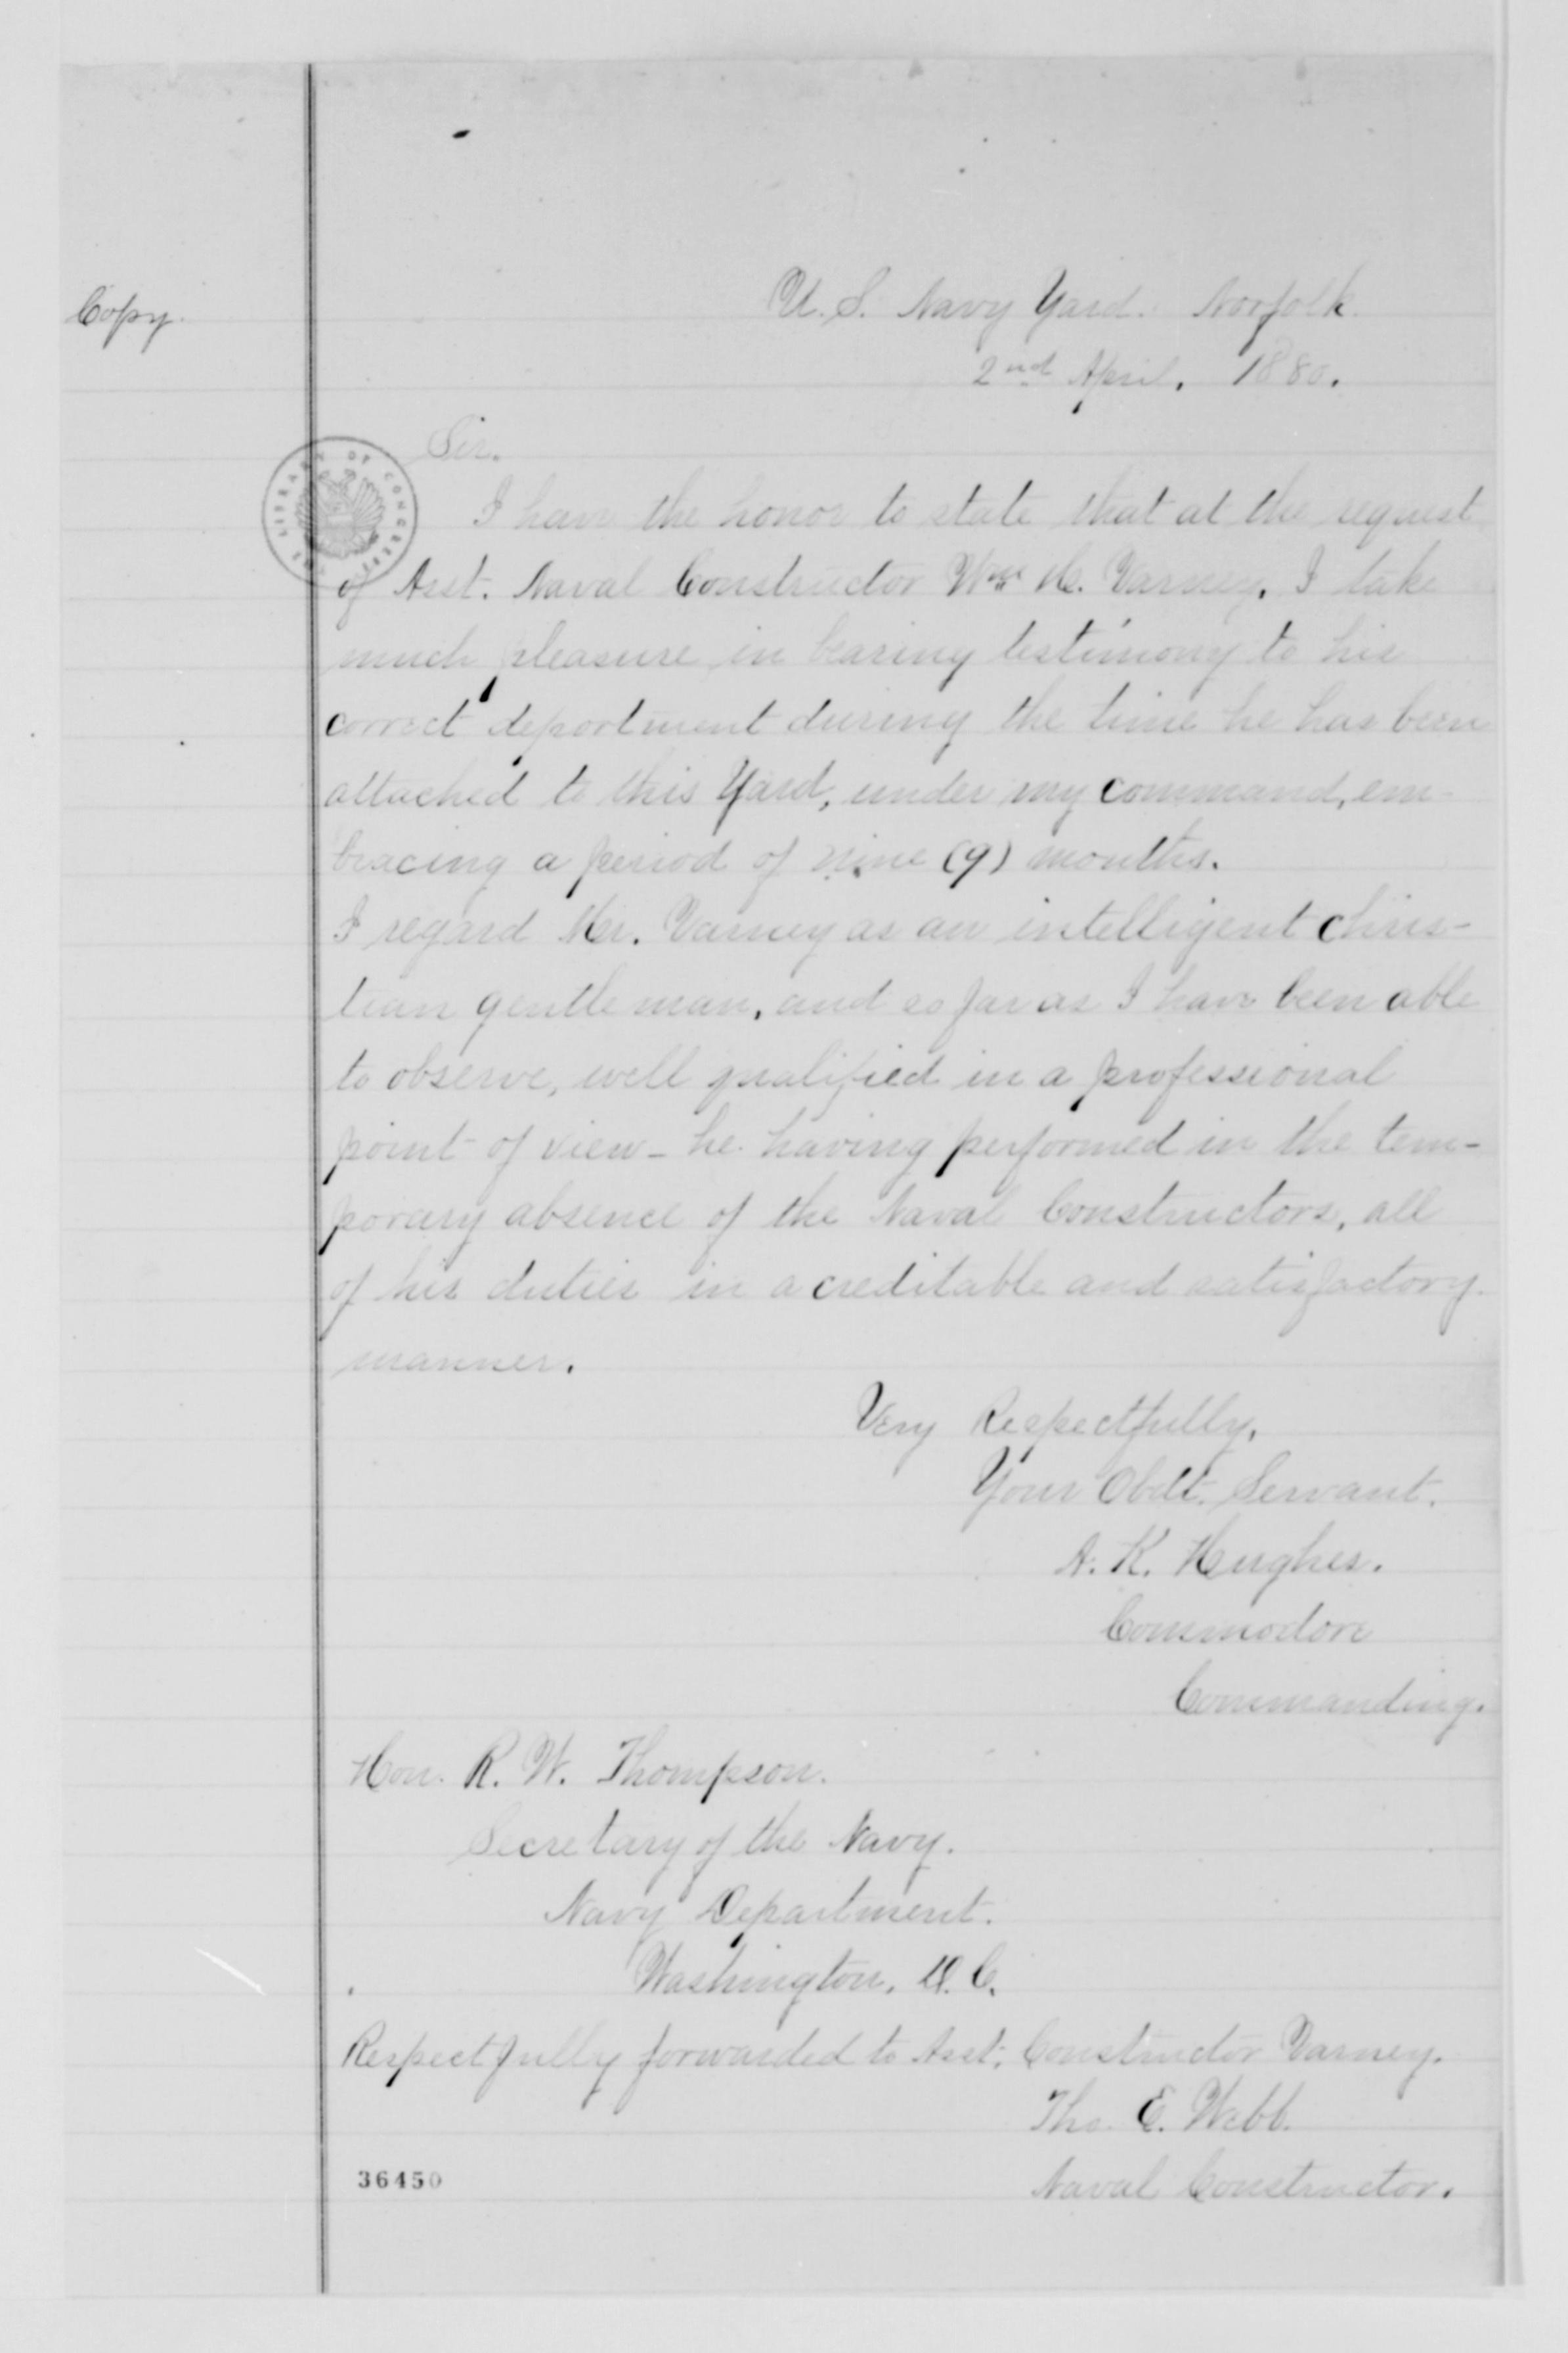 Copy.
U. S. Navy Yard. Norfolk.
2nd April. 1880.
Sir.
I have the honor to state that at the request
of Asst. Naval Constructor Wm H. Varney. I take
much pleasure in bearing testimony to his
correct deportment during the time he has been
attached to this Yard, under my command, em-
bracing a period of nine (9) months.
I regard Mr. Varney as an intelligent chris-
tian gentleman, and so far as I have been able
to observe, well qualified in a professional
point of view - he having performed in the tem-
porary absence of the Naval Constructors, all
of his duties in a creditable and satisfactory
manner.
Very Respectfully,
Your Obdt. Servant.
A. K. Hughes.
Commodore
Commanding.
Hon. R. W. Thompson.
Secretary of the Navy.
Navy Department.
Washington. D. C.
Respectfully forwarded to Asst. Constructor Varney.
Tho. E. Webb.
Naval Constructor.
36450
THE LIBRARY OF CONGRESS